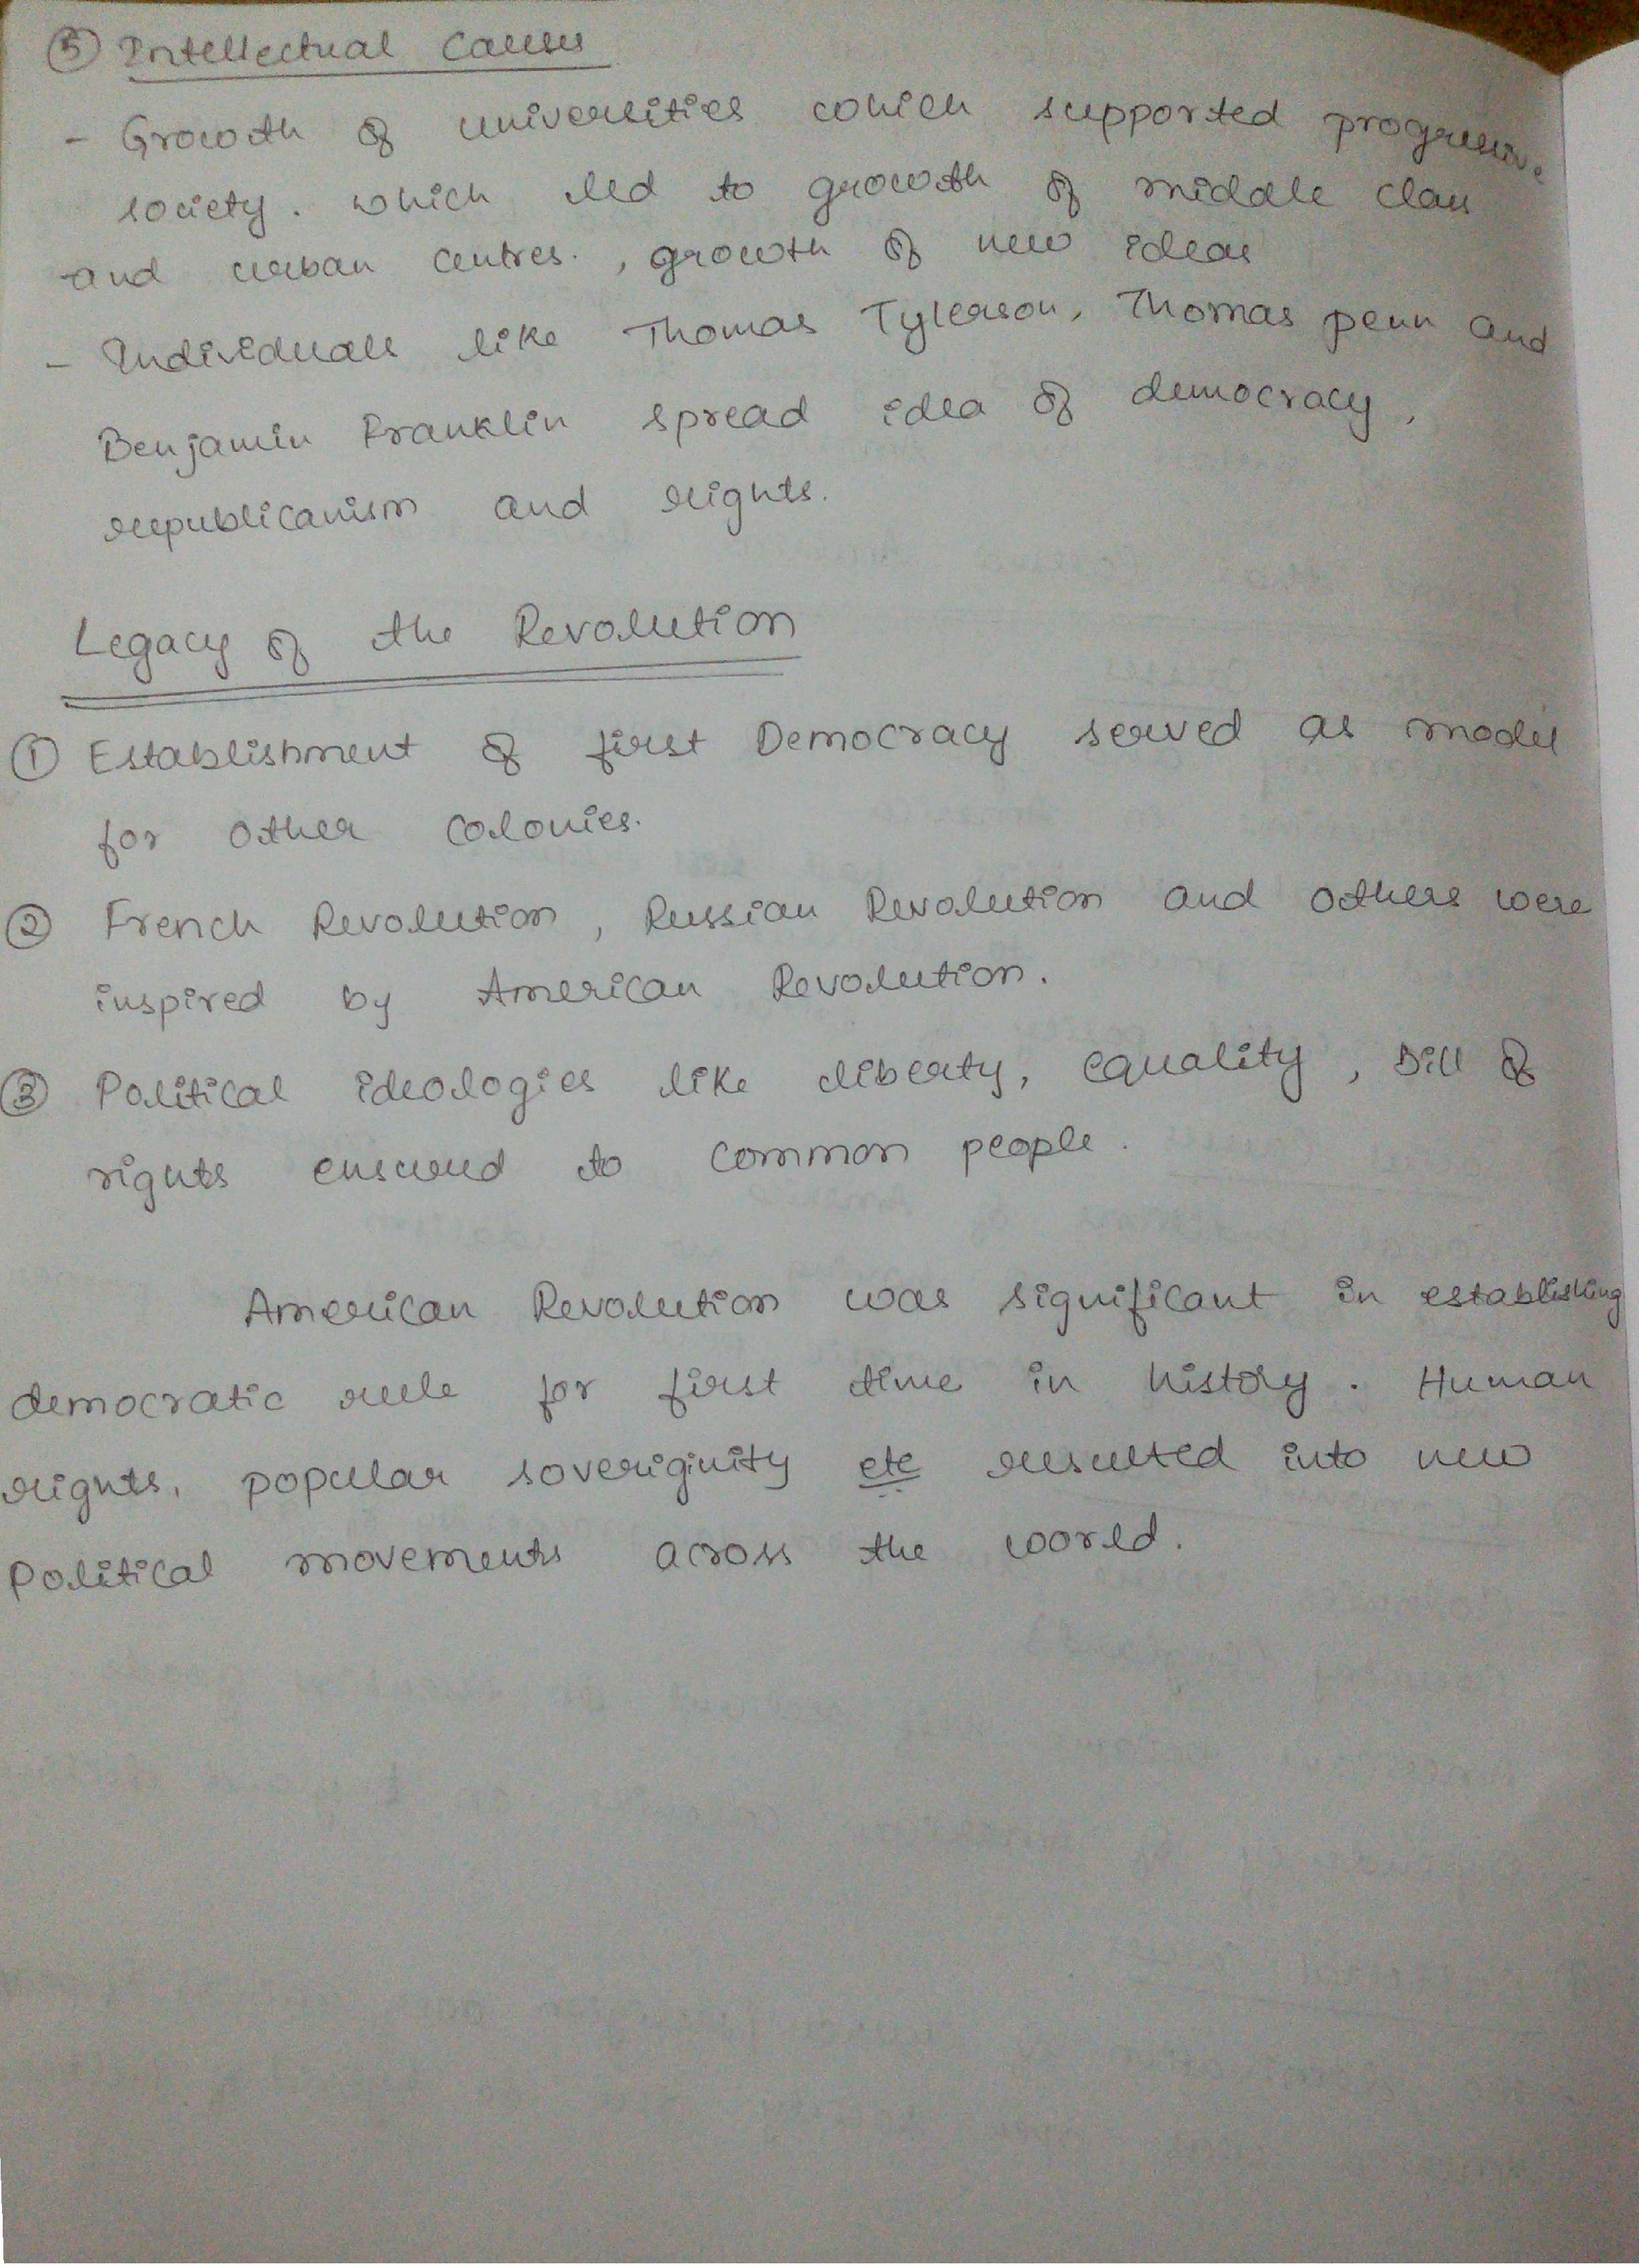 ⑤ Intellectual Causes
- Growth of universities which supported progressive
society. which led to growth of middle class
and urban centres. , growth of new ideas
- Individuals like Thomas Tylerson, Thomas penn and
Benjamin Franklin spread idea of democracy,
republicanism and rights.
Legacy of the Revolution
① Establishment of first Democracy served as model
for other colonies.
② French Revolution, Russian Revolution and others were
inspired by American Revolution.
③ Political ideologies like liberty, equality, Bill of
rights ensured to common people.
American Revolution was significant in establishing
democratic rule for first time in history. Human
rights, popular soveriginity etc resulted into new
Political movements across the world.